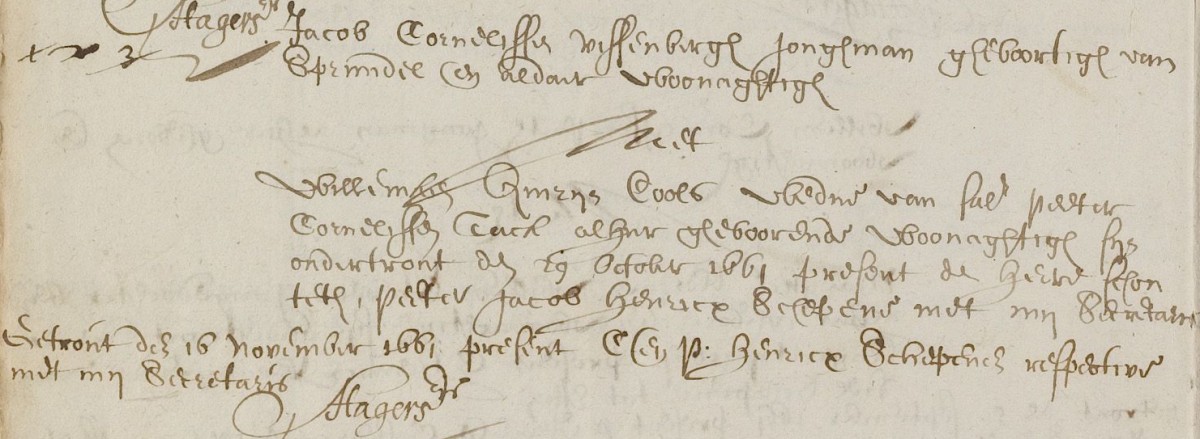 Hagers
Jacob Cornelissen Vissenbergh jonghman gheboortigh van
3
Sprundel en aldair woonachtigh
Met
Willemken Quirijs Cools Wedue van sal: peeter
Cornelissen Tack alhier gheboorende woonachtigh sijn
ondertrout den 29 October 1661 present de heere schou
teth, peeter Jacob Henricx Schepene met mij Secretaris
Getrout den 16 November 1661 present C en p: Henricx Schepenen respective
met mij Secretaris
Hagers